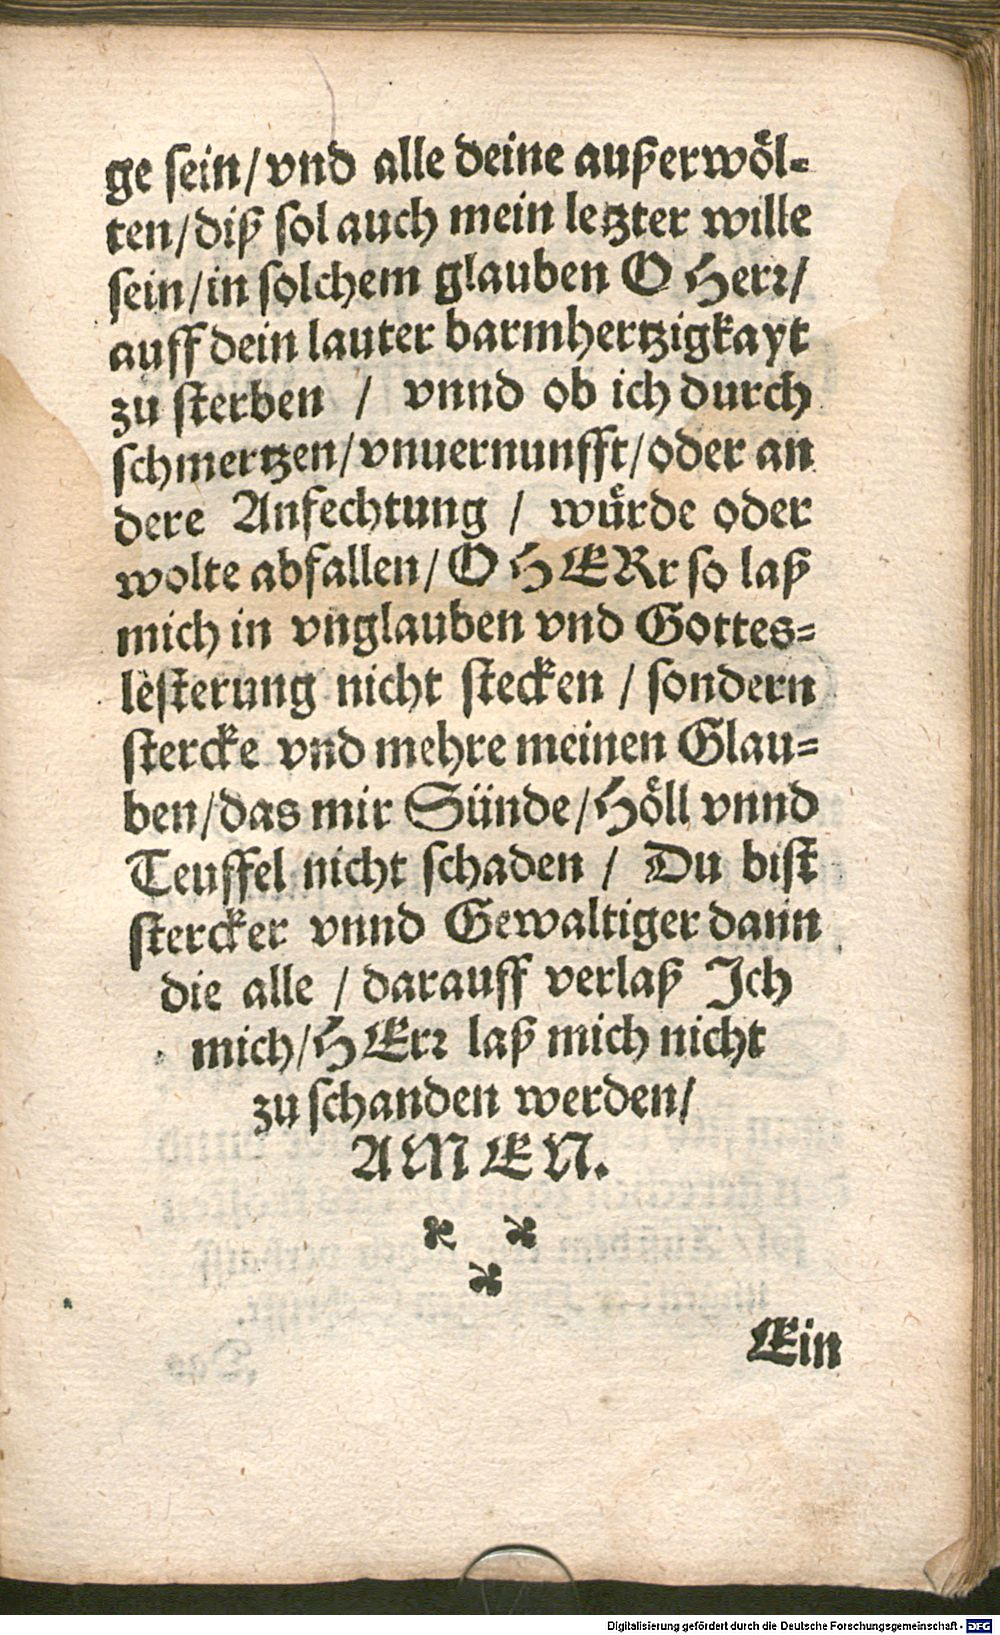 ge sein/vnd alle deine außerwoͤl-
ten/diß sol auch mein letzter wille
sein/in solchem glauben O Herr/
auff dein lauter barmhertzigkayt
zu sterben / vnnd ob ich durch
schmertzen/vnuernunfft/oder an
dere Anfechtung / wuͤrde oder
wolte abfallen/O HERr so laß
mich in vnglauben vnd Gottes=
lesterung nicht stecken / sondern
stercke vnd mehre meinen Glau=
ben/das mir Sünde/Hoͤll vnnd
Teuffel nicht schaden / Du bist
stercker vnnd Gewaltiger dann
die alle / darauff verlaß Ich
mich/HErr laß mich nicht
zu schanden werden/
AMEN.
Ein
Digitalisierung gefördert durch die Deutsche Forschungsgemeinschaft - DFG